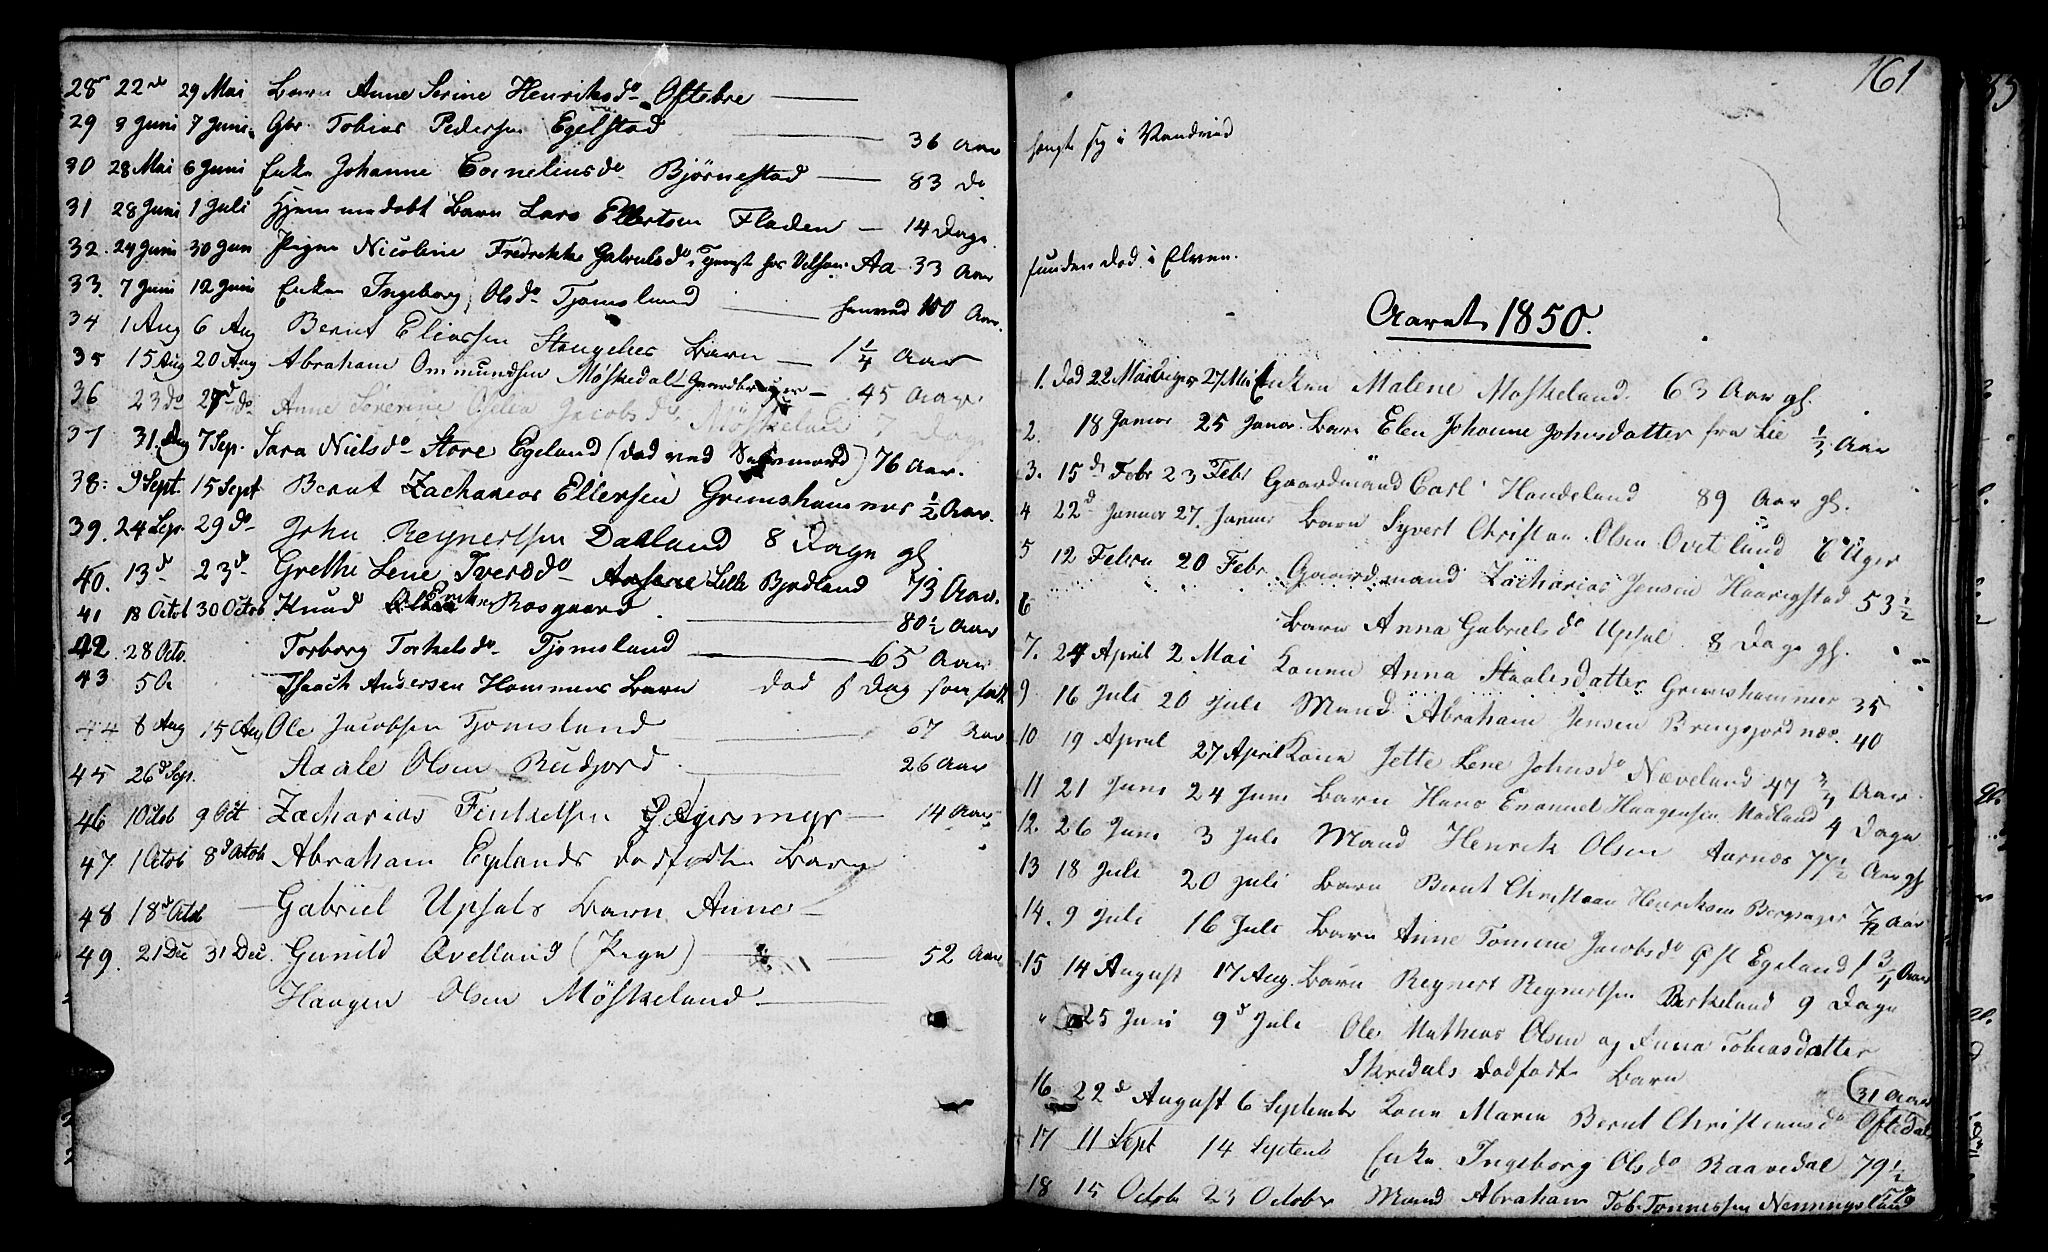 28 22 29 Mai Barn Anne Serine Henriksd Oftebre
29 3 Juni 7 Juni Gbr. Tobias Pedersen Egelstad 36 Aar
30 28 Mai 6 Juni Enke Johanne Corneliusd Bjørnestad 83 do
31 28 Juni 1 Juli Hjemmedøbt Barn Lars Ellertsen Fladen 14 Dage
32. 24 Juni 30 Jun Pigen Nicoline Fredrekke Gabrielsd i Tjenest hos Aa 33 Aar
33. 7 Juni 12 Juni Enken Ingeborg Olsd Tjomsland henved 100 Aar.
34 1 Aug 6 Aug Bernt Eliassen Stangelies Barn 1 1/4 Aar
35 15 Aug 20 Aug Abraham Ommundsen Møskedal Gaardbruger 45 Aar
36 23 do 27 do Anne Severine Jacobsd Møskeland 7 Dage
37 31. Aug 7 Sep. Sara Nielsd Store Egeland (død ved Selvmord) 76 Aar.
38. 9 Sept. 15 Sept Bernt Zacharias Ellersen Grimshammer 1/2 Aar.
39. 24 Sep. 29 do John Reynertsen Dalland 8 Dage gl.
40. 13 d 23 d Grethe Lene Lille Bjodland 73 Aar.
41 18 Octob 30 Octob Knud Rosgaard 80 1/2 Aar
42. 28 Octo. Torborg Torkelsd Tjomsland 65 Aar
43 5 Isaach Andersen Hommens Barn død 8 Dag
44 8 Aug 15 Aug Ole Jacobsen Tjomsland 67 Aar
45 26 d Sep. Staale Olsen Rudjord 26 Aar
46 1 Octob 9 Oct Zacharias Tintelsen 14 Aar
47 1 Octob 8 d Octob Abraham Egelands dødfødte Barn
48 18 Octob Gabriel Upsals Barn Anne
49. 21 Dec 31 Dec. Gunild Ovelland (Pige) 52 Aar
Haagen Olsen Møskeland
161
hengte sig i Vandvid
funden død i Elven.
Aaret 1850.
1. død 22 Mai 27 Mai Enken Malene Moskeland 63 Aar gl.
2. 18 Januar 25 Januar Barn Elen Johanne Johnsdatter fra Lie 1/3 Aar
3. 15 d Febr 23 Febr Gaardmand Carl Handeland 89 Aar gl.
4 22 d Januar 27 Januar Barn Syvert Christian Olsen Ovelland 6 Uger
5 12 Febru 20 Febr. Gaardmand Zacharias Jensen Haarigstad 53 1/2
6 Barn Anna Gabrielsd Upsal 8 Dage gl.
7. 24 April 2 Mai Konen Anna Staalesdatter Grimshammer 35
9 16 Juli 20 Juli Mand Abraham Jensen Bringsjordnæs. 40
10 19 April 27 April Kone Jette Lene Johnsd Næveland 47 3/4 Aar.
11 21 Juni 24 Juni Barn Hans Emanuel Haagensen Madland 4 Dage
12. 26 Juni 3 Juli Mand Henrik Olsen Aarnæs 77 1/2 Aar gl
13 18 Juli 20 Juli Barn Bernt Christian Henriksen Bergsager Aar
14. 9 Juli 16 Juli Barn Anne Tomine Jacobsd Egeland 1 3/4 Aar
15 14 August 17 Aug. Barn Reynert Reynertsen Birkeland 9 Dage
" 25 Juni 9 d Juli Ole Mathias Olsen og Anna Tobiasdatter
Skredals dødfødt Barn
16 22 d August 6 September Kone Maren Bernt Christiansd Oftedal (31 Aar
17 11 Sept 14 Septemb Enke Ingeborg Olsd Raavedal 79 1/2
18 15 Octob 23 October Mand Abraham Tob. Tønnessen Nenningsland